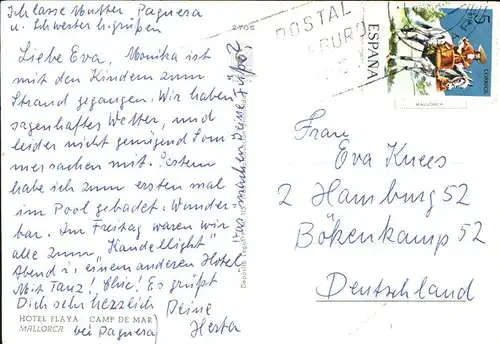 Ich lasse Mutter Paguera
u. Schwester h. grüßen
2705
Liebe Eva, Monika ist
mit den Kindern zum
Strand gegangen. Wir haben
sagenhaftes Wetter, und
leider nicht genügend Som
mersachen mit. Gestern
habe ich zum ersten mal
im Pool gebadet. Wunder-
bar. Am Freitag waren wir
alle zum "Kandellight"
Abend i. einem anderen Hotel
Mit Tanz! Chic! Es grüßt
Dich sehr herzlich
Deine
Herta
bei Paguera
machen Deine Füße?
HOTEL PLAYA CAMP DE MAR
MALLORCA
Deposito Legal
POSTAL
ESPAÑA
5
CORREOS
MALLORCA
Frau
Eva Knees
2 Hamburg 52
Bökenkamp 52
Deutschland